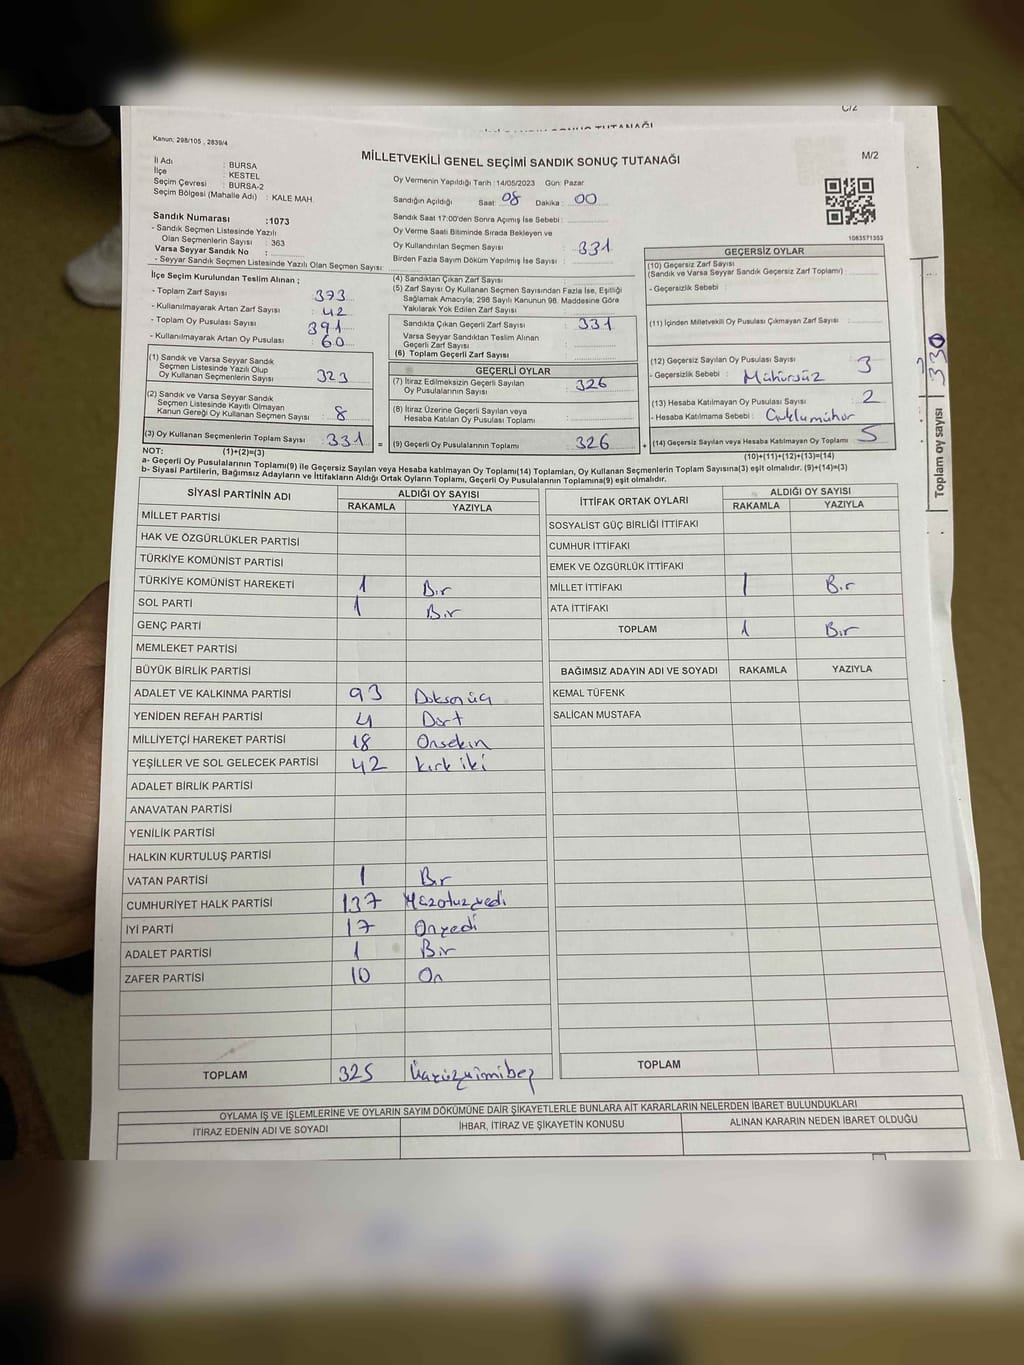 C/2
Kanun: 298/105 , 2839/4
MİLLETVEKİLİ GENEL SEÇİMİ SANDIK SONUÇ TUTANAĞI
M/2
İl Adı : BURSA
İlçe : KESTEL
Seçim Çevresi : BURSA-2
Seçim Bölgesi (Mahalle Adı) : KALE MAH.
Oy Vermenin Yapıldığı Tarih :14/05/2023 Gün: Pazar
Sandığın Açıldığı Saat: 08 Dakika: 00
Sandık Saat 17:00'den Sonra Açımış İse Sebebi :
Oy Verme Saati Bitiminde Sırada Bekleyen ve
Oy Kullandırılan Seçmen Sayısı : 331
Birden Fazla Sayım Döküm Yapılmış İse Sayısı :
1083571353
Sandık Numarası :1073
- Sandık Seçmen Listesinde Yazılı
Olan Seçmenlerin Sayısı : 363
Varsa Seyyar Sandık No :
- Seyyar Sandık Seçmen Listesinde Yazılı Olan Seçmen Sayısı:
İlçe Seçim Kurulundan Teslim Alınan ;
- Toplam Zarf Sayısı : 373
- Kullanılmayarak Artan Zarf Sayısı : 42
- Toplam Oy Pusulası Sayısı : 391
- Kullanılmayarak Artan Oy Pusulası : 60
(1) Sandık ve Varsa Seyyar Sandık
Seçmen Listesinde Yazılı Olup
Oy Kullanan Seçmenlerin Sayısı : 323
(2) Sandık ve Varsa Seyyar Sandık
Seçmen Listesinde Kayıtlı Olmayan
Kanun Gereği Oy Kullanan Seçmen Sayısı : 8
(3) Oy Kullanan Seçmenlerin Toplam Sayısı : 331 =
(4) Sandıktan Çıkan Zarf Sayısı :
(5) Zarf Sayısı Oy Kullanan Seçmen Sayısından Fazla İse, Eşitliği
Sağlamak Amacıyla; 298 Sayılı Kanunun 98. Maddesine Göre
Yakılarak Yok Edilen Zarf Sayısı :
Sandıkta Çıkan Geçerli Zarf Sayısı : 331
Varsa Seyyar Sandıktan Teslim Alınan
Geçerli Zarf Sayısı :
(6) Toplam Geçerli Zarf Sayısı :
GEÇERLİ OYLAR
(7) İtiraz Edilmeksizin Geçerli Sayılan
Oy Pusulalarının Sayısı : 326
(8) İtiraz Üzerine Geçerli Sayılan veya
Hesaba Katılan Oy Pusulaları Toplamı :
(9) Geçerli Oy Pusulalarının Toplamı 326 +
GEÇERSİZ OYLAR
(10) Geçersiz Zarf Sayısı
(Sandık ve Varsa Seyyar Sandık Geçersiz Zarf Toplamı)
- Geçersizlik Sebebi :
(11) İçinden Milletvekili Oy Pusulası Çıkmayan Zarf Sayısı
(12) Geçersiz Sayılan Oy Pusulası Sayısı : 3
- Geçersizlik Sebebi : Mühürsüz
(13) Hesaba Katılmayan Oy Pusulası Sayısı : 2
- Hesaba Katılmama Sebebi :
(14) Geçersiz Sayılan veya Hesaba Katılmayan Oy Toplamı : 5
(10)+(11)+(12)+(13)=(14)
Toplam oy sayısı 330
NOT: (1)+(2)=(3)
a- Geçerli Oy Pusulalarının Toplamı(9) ile Geçersiz Sayılan veya Hesaba katılmayan Oy Toplamı(14) Toplamları, Oy Kullanan Seçmenlerin Toplam Sayısına(3) eşit olmalıdır. (9)+(14)=(3)
b- Siyasi Partilerin, Bağımsız Adayların ve İttifakların Aldığı Ortak Oyların Toplamı, Geçerli Oy Pusulalarının Toplamına(9) eşit olmalıdır.
SİYASİ PARTİNİN ADI ALDIĞI OY SAYISI
RAKAMLA YAZIYLA
MİLLET PARTİSİ
HAK VE ÖZGÜRLÜKLER PARTİSİ
TÜRKİYE KOMÜNİST PARTİSİ
TÜRKİYE KOMÜNİST HAREKETİ 1 Bir
SOL PARTİ 1 Bir
GENÇ PARTİ
MEMLEKET PARTİSİ
BÜYÜK BİRLİK PARTİSİ
ADALET VE KALKINMA PARTİSİ 93 Doksonüç
YENİDEN REFAH PARTİSİ 4 Dört
MİLLİYETÇİ HAREKET PARTİSİ 18 Onsekin
YEŞİLLER VE SOL GELECEK PARTİSİ 42 kırk iki
ADALET BİRLİK PARTİSİ
ANAVATAN PARTİSİ
YENİLİK PARTİSİ
HALKIN KURTULUŞ PARTİSİ
VATAN PARTİSİ 1 Bir
CUMHURİYET HALK PARTİSİ 137
İYİ PARTİ 17 Onyedi
ADALET PARTİSİ 1 Bir
ZAFER PARTİSİ 10 On
TOPLAM 325
İTTİFAK ORTAK OYLARI ALDIĞI OY SAYISI
RAKAMLA YAZIYLA
SOSYALİST GÜÇ BİRLİĞİ İTTİFAKI
CUMHUR İTTİFAKI
EMEK VE ÖZGÜRLÜK İTTİFAKI
MİLLET İTTİFAKI 1 Bir
ATA İTTİFAKI
TOPLAM 1 Bir
BAĞIMSIZ ADAYIN ADI VE SOYADI RAKAMLA YAZIYLA
KEMAL TÜFENK
SALİCAN MUSTAFA
TOPLAM
OYLAMA İŞ VE İŞLEMLERİNE VE OYLARIN SAYIM DÖKÜMÜNE DAİR ŞİKAYETLERLE BUNLARA AİT KARARLARIN NELERDEN İBARET BULUNDUKLARI
İTİRAZ EDENİN ADI VE SOYADI İHBAR, İTİRAZ VE ŞİKAYETİN KONUSU ALINAN KARARIN NEDEN İBARET OLDUĞU